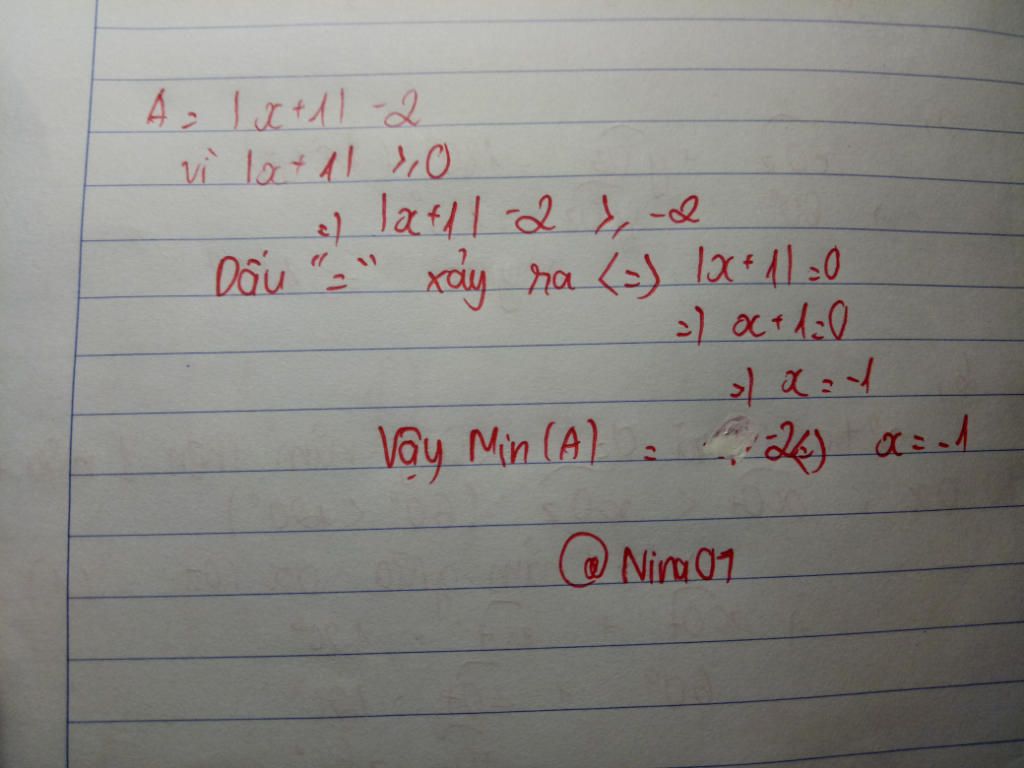 A = |x+1| -2
vì |x+1| ≥ 0
=) |x+1| -2 ≥ -2
Dấu "=" xảy ra <=> |x+1| =0
=) x+1=0
=) x = -1
Vậy Min (A) = -2 <=> x = -1
@Nina01